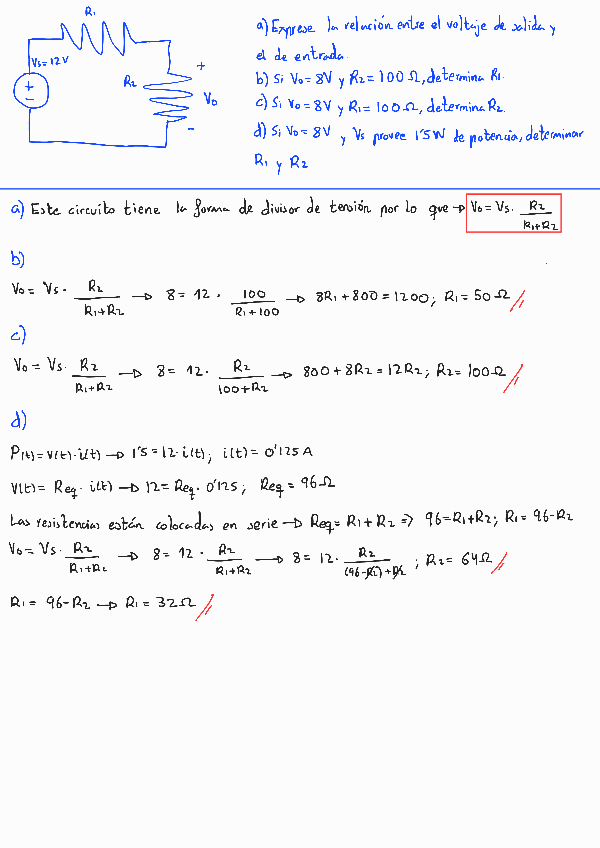 R₁
Vs=12V
R₂
+
Vo
-
a) Exprese la relación entre el voltaje de salida y
el de entrada.
b) Si Vo=8V y R₂=100Ω, determina R₁.
c) Si Vo=8V y R₁=100Ω, determina R₂.
d) Si Vo=8V y Vs provee 1'5W de potencia, determinar
R₁ y R₂
a) Este circuito tiene la forma de divisor de tensión por lo que → Vo=Vs· R₂/(R₁+R₂)
b)
Vo = Vs · R₂/(R₁+R₂) → 8 = 12 · 100/(R₁+100) → 8R₁+800=1200; R₁=50Ω
c)
Vo = Vs · R₂/(R₁+R₂) → 8 = 12 · R₂/(100+R₂) → 800+8R₂=12R₂; R₂=100Ω
d)
P(t)=V(t)·i(t) → 1'5=12·i(t); i(t)=0'125A
V(t)= Req· i(t) → 12=Req· 0'125; Req=96Ω
Las resistencias están colocadas en serie → Req=R₁+R₂ => 96=R₁+R₂; R₁=96-R₂
Vo=Vs· R₂/(R₁+R₂) → 8 = 12 · R₂/(R₁+R₂) → 8 = 12· R₂/((96-R₂)+R₂) ; R₂=64Ω
R₁= 96-R₂ → R₁=32Ω